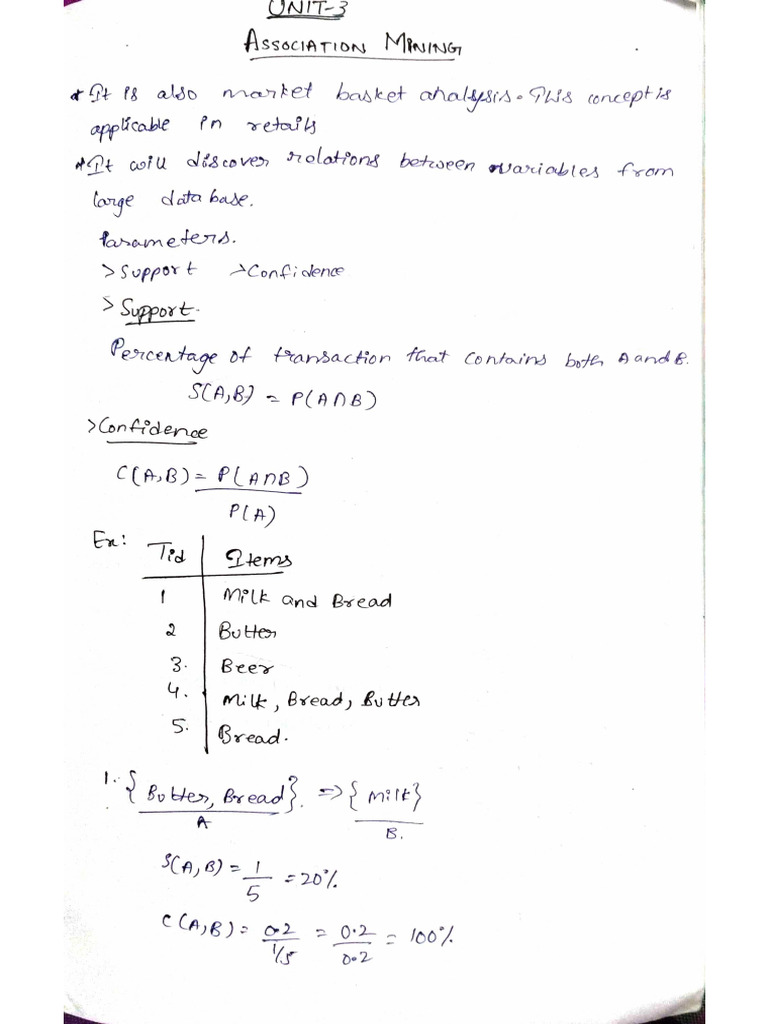 UNIT-3
ASSOCIATION MINING
* It is also market basket analysis. This concept is
applicable in retails
* It will discover relations between variables from
large data base.
Parameters.
> Support > Confidence
> Support.
Percentage of transaction that contains both A and B.
S(A,B) = P(A∩B)
> Confidence
C(A,B) = P(A∩B)
P(A)
Ex: Tid Items
1 Milk and Bread
2 Butter
3. Beer
4. Milk, Bread, Butter
5. Bread.
1. {Butter, Bread}. => {Milk}
A B.
S(A,B) = 1/5 = 20%
C(A,B) = 0.2/1/5 = 0.2/0.2 = 100%